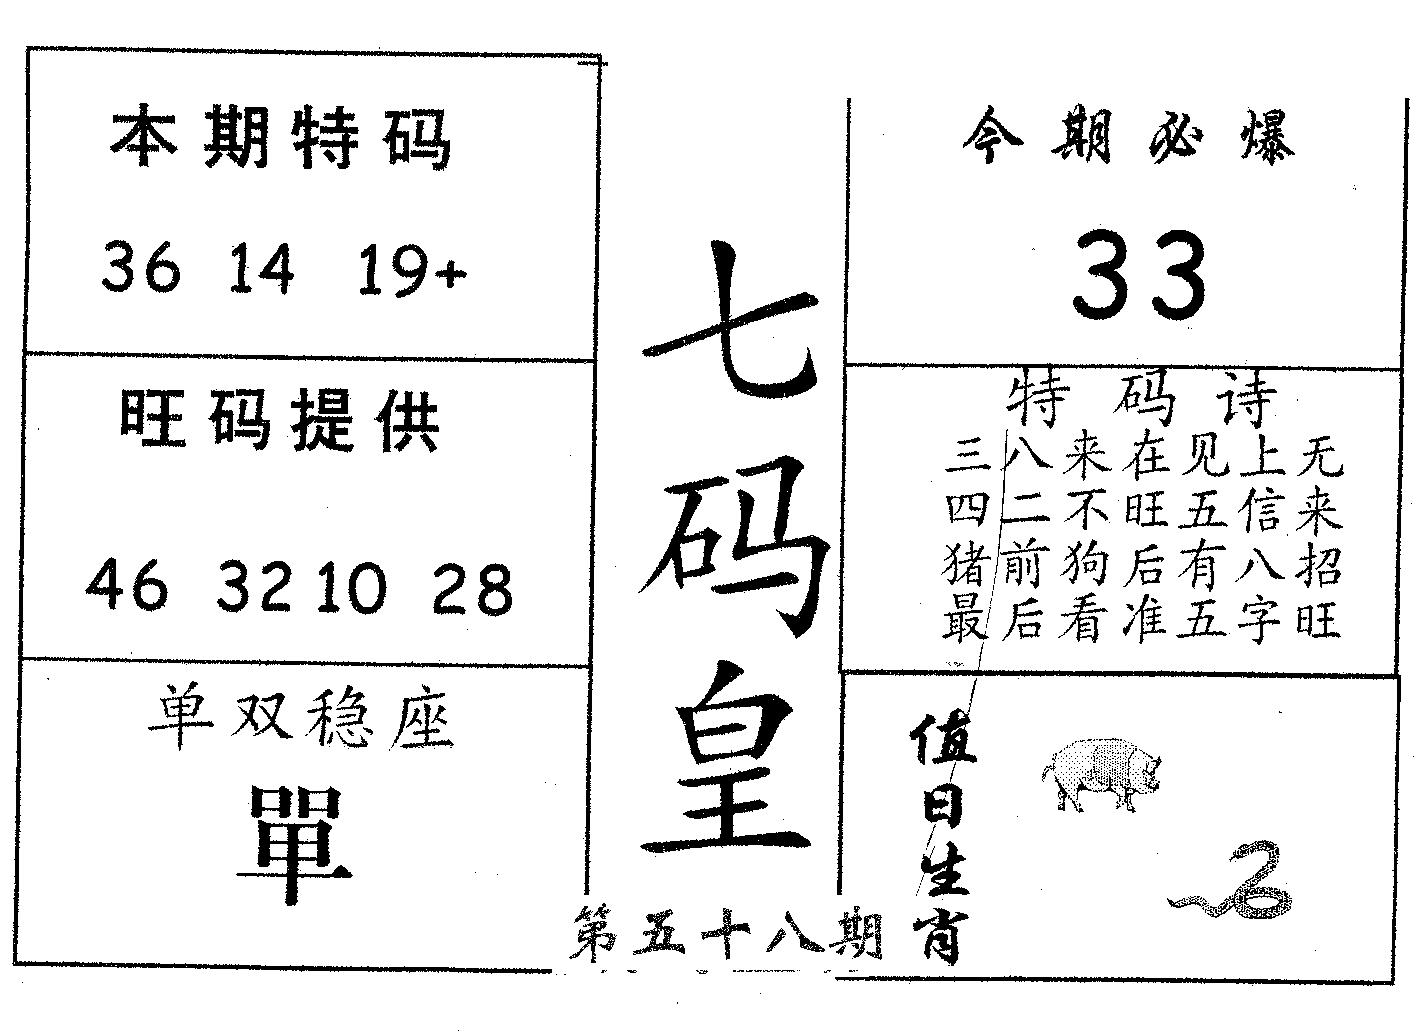 本期特码
36 14 19+
旺码提供
46 32 10 28
单双稳座
單
七码皇
第五十八期
今期必爆
33
特码诗
三八来在见上无
四二不旺五信来
猪前狗后有八招
最后看准五字旺
值日生肖